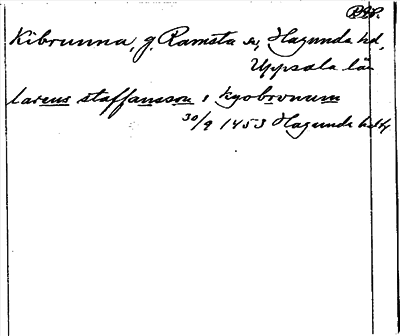 Kibrunna, g. Ramsta sn, Hagunda hd,
Uppsala län
larens staffansson i kyobronum
30/9 1453 Hagunda